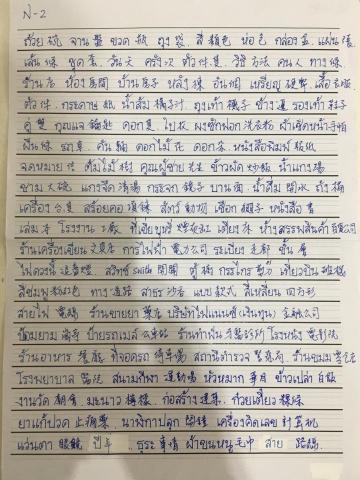 N-2
ถ้วย 碗 จาน 盤 ขวด 瓶 ถุง 袋 สี 顏色 ห่อ 包 กล่อง 盒 แผ่น 張
เส้น 條 ชุด 套 วัน 天 ครั้ง 次 ตัว 件, 隻 วิธี 方法 คน 人 ทาง 條
ร้าน 店 ห้อง 房間 บ้าน 房子 หลัง 棟 อัน 個 เหรียญ 硬幣 เสื้อ
ตัว 件 กระดาษ 紙 น้ำส้ม 橘子汁 ถุงเท้า 襪子 ข้าง 邊 รองเท้า 鞋子
คู่ 雙 กุญแจ 鑰匙 ดอก 支 ใบ 把 ผงซักฟอก 洗衣粉 ผ้าเช็ดหน้า 手帕
ผืน 條 รถ 車 คัน 輛 ดอกไม้ 花 ดอก 朵 หนังสือพิมพ์ 報紙
จดหมาย 信 ต้นไม้ 樹 คุณผู้ชาย 先生 ข้าวผัด 炒飯 น้ำแข็ง
ชาม 大碗 แกงจืด 清湯 กระจก 鏡子 บาน 面 น้ำดื่ม 開水 ถัง 桶
เครื่อง 台 สร้อยคอ 項鍊 สัตว์ 動物 เชือก 繩子 หนังสือ 書
เล่ม 本 โรงงาน 工廠 ที่เขี่ยบุหรี่ 煙灰缸 เตียง 床 ห้างสรรพสินค้า 百貨公司
ร้านเครื่องเขียน 文具店 การไฟฟ้า 電力公司 ระเบียง 走廊 ชั้น 層
ไฟดวงนี้ 這盞燈 สวิทช์ switch 開關 ตู้ 櫃 กรรไกร 剪刀 เตียวปิน
สีชมพู 粉紅色 ทาง 道路 สาธร 沙吞 แบบ 款式 สี่เหลี่ยม 四方形
สายไฟ 電線 ร้านขายยา 藥店 บริษัทไฟแนนซ์ (เงินทุน) 金融公司
ป้อมยาม 崗亭 ป้ายรถเมล์ 公車站 ร้านทำฟัน 牙醫診所 โรงหนัง 電影院
ร้านอาหาร 餐廳 ที่จอดรถ 停車場 สถานีตำรวจ 警察局 ร้านขนม
โรงพยาบาล 醫院 สนามกีฬา 運動場 หัวหมาก 華目 ข้าวเปล่า 白飯
งานวัด 廟會 มะนาว 檸檬 ก่อสร้าง 建築 ก๋วยเตี๋ยว 粿條
ยาแก้ปวด 止痛藥 นาฬิกาปลุก 鬧鐘 เครื่องคิดเลข 計算機
แว่นตา 眼鏡 ปี 年 ธุระ 事情 ผ้าขนหนู 毛巾 สาย 路線